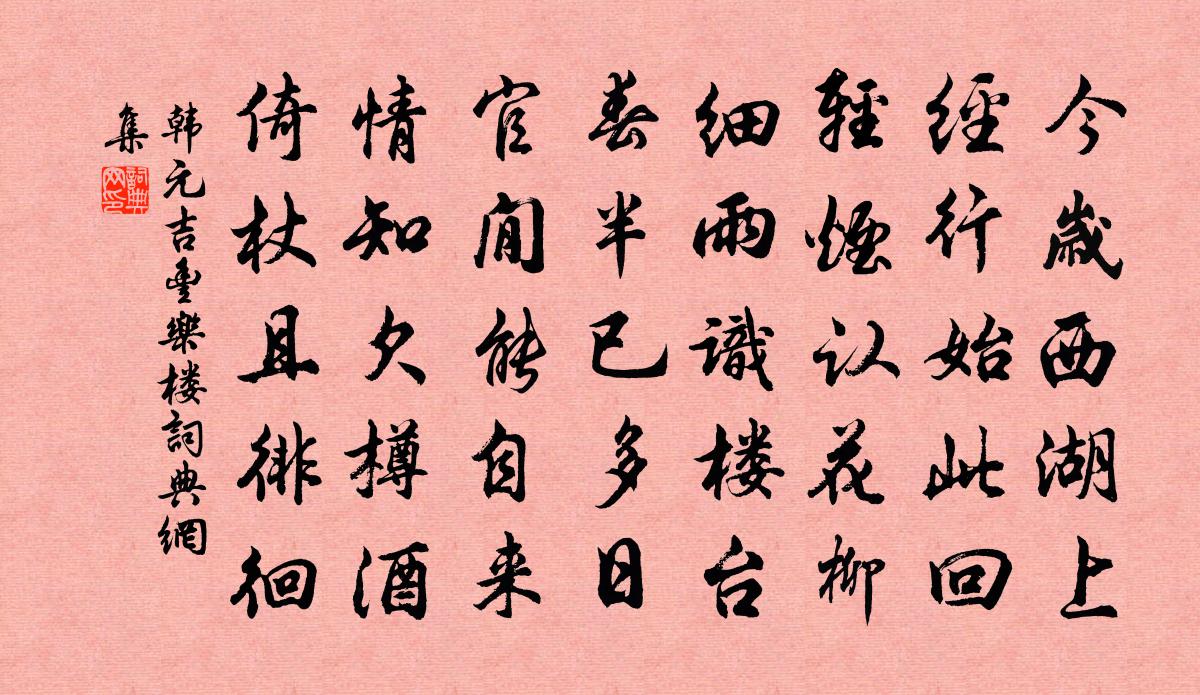 今歲西湖上
經行始此回
輕煙认花柳
細雨識楼台
春半已多日
官閒能自来
情知欠樽酒
倚杖且徘徊
韩元吉豊樂楼詞典網
集
詞典
网印